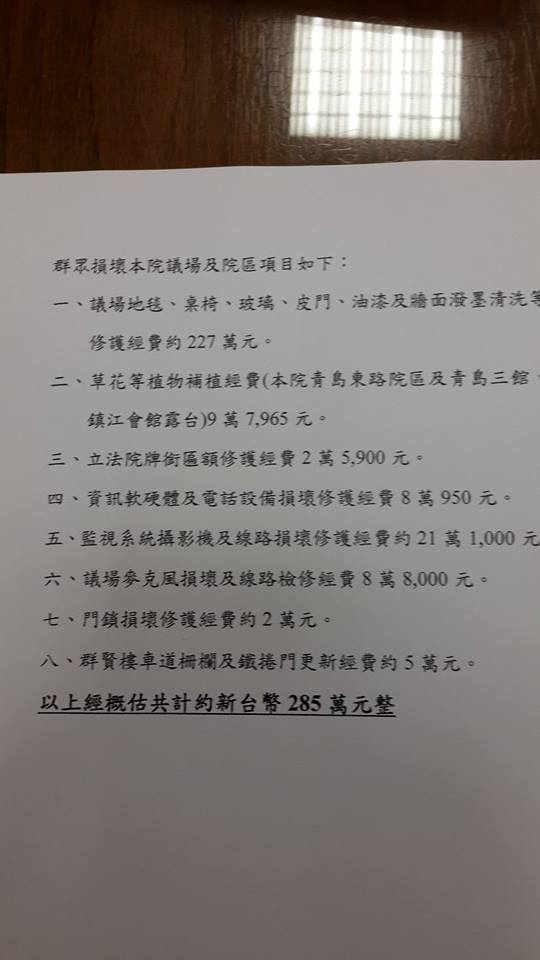 群眾損壞本院議場及院區項目如下：
一、議場地毯、桌椅、玻璃、皮門、油漆及牆面潑墨清洗等
修護經費約 227 萬元。
二、草花等植物補植經費(本院青島東路院區及青島三館、
鎮江會館露台)9 萬 7,965 元。
三、立法院牌銜匾額修護經費 2 萬 5,900 元。
四、資訊軟硬體及電話設備損壞修護經費 8 萬 950 元。
五、監視系統攝影機及線路損壞修護經費約 21 萬 1,000 元
六、議場麥克風損壞及線路檢修經費 8 萬 8,000 元。
七、門鎖損壞修護經費約 2 萬元。
八、群賢樓車道柵欄及鐵捲門更新經費約 5 萬元。
以上經概估共計約新台幣 285 萬元整